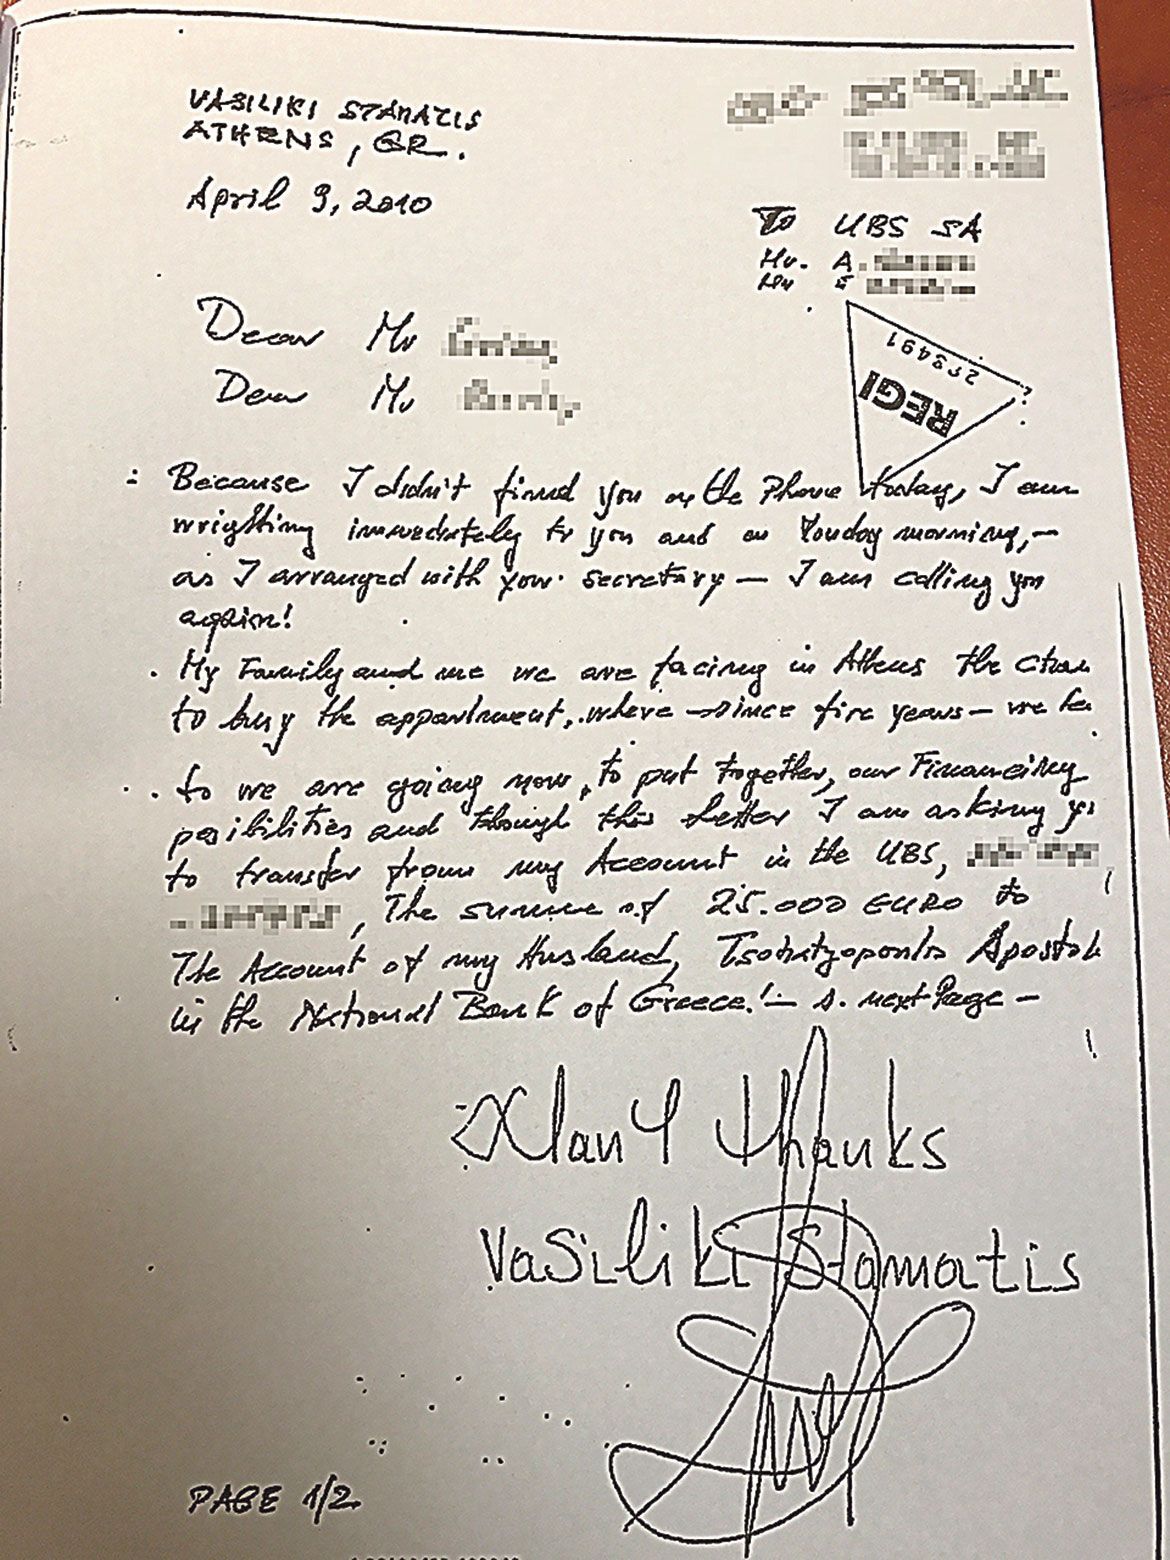 VASILIKI STAMATIS
ATHENS, GR.
April 9, 2010
To UBS SA
Mr. A.
Mr
273491
REGI
Dear Mr
Dear Mr
: Because I didn't find you on the Phone today, I am
wrighting immediately to you and on Monday morning,—
as I arranged with your secretary — I am calling you
again!
. My Family and me we are facing in Athens the
to buy the appartment, where — since five years — we
. So we are going now, to put together, our Financing
posibilities and through this Letter I am asking
to transfer from my Account in the UBS,
, The summe of 25.000 EURO to
The Account of my Husband, Tsohatzopoulos
in the National Bank of Greece! — s. next Page —
Many thanks
Vasiliki Stamatis
PAGE 1/2